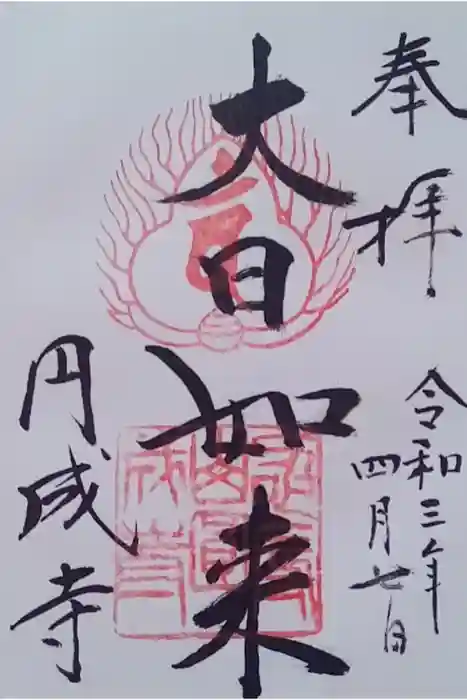 奉拝
令和三年
四月七日
大日如来
円成寺